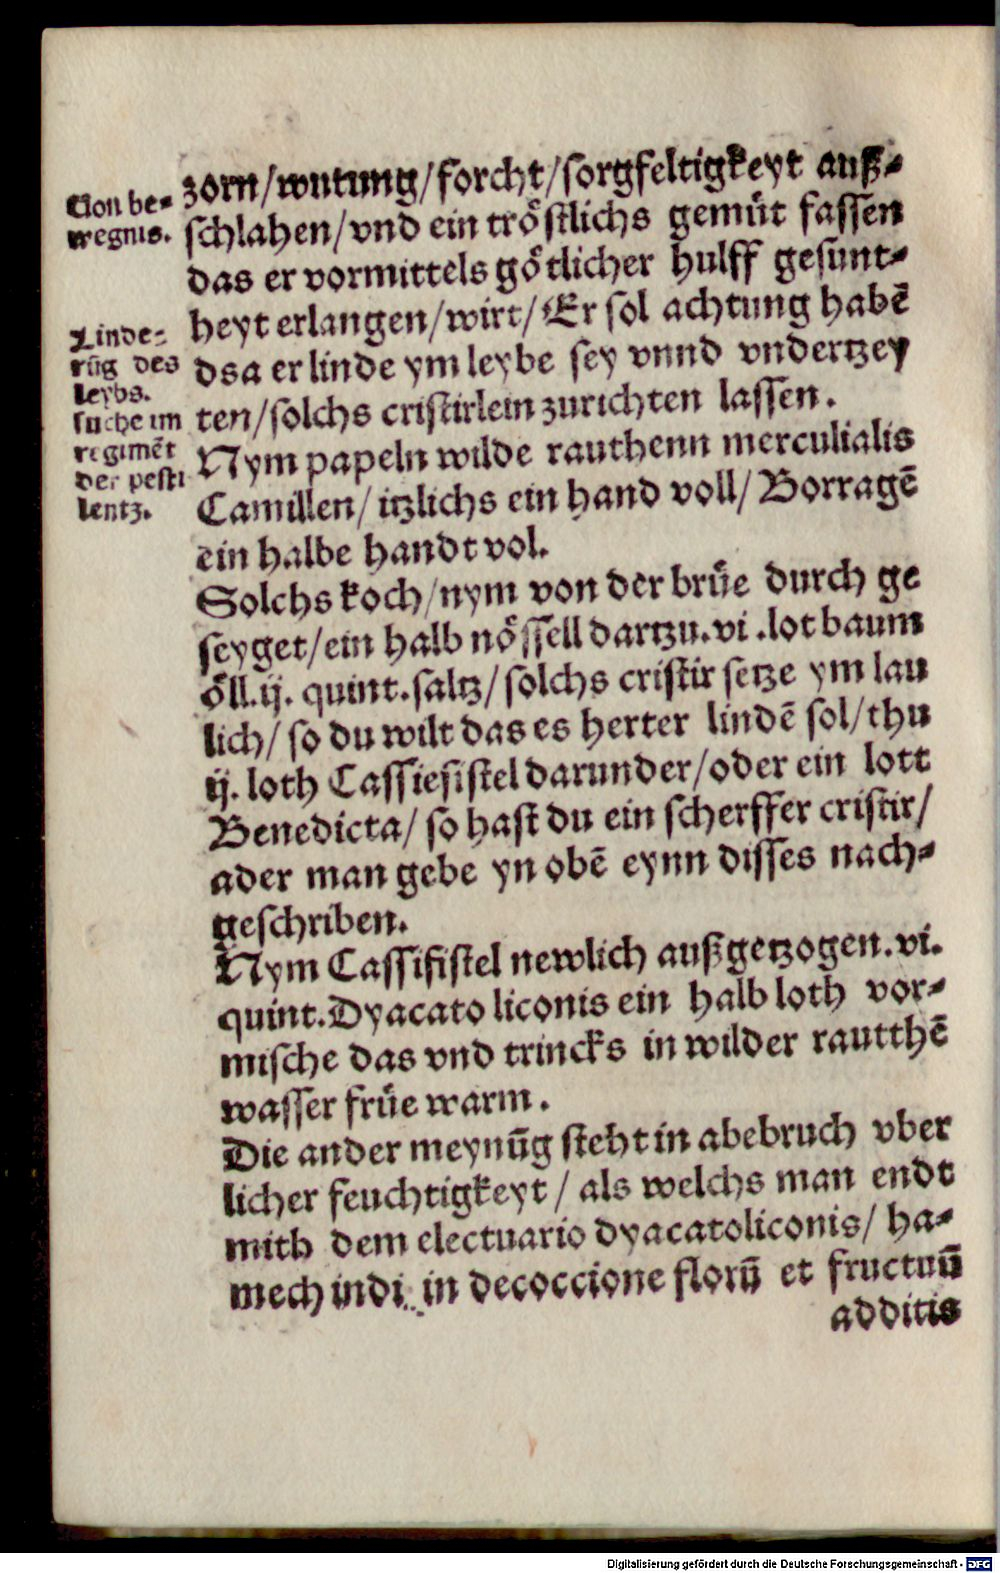 Von be-
wegnis.
Linde-
rūg des
leybs.
suche im
regimēt
der pesti
lentz.
zorn/wutung/forcht/sorgfeltigkeyt auß-
schlahen/vnd ein troͤstlichs gemuͤt fassen
das er vormittels goͤtlicher hulff gesunt-
heyt erlangen/wirt/Er sol achtung habē
dsa er linde ym leybe sey vnnd vndertzey
ten/solchs cristirlein zurichten lassen.
Nym papeln wilde rauthenn merculialis
Camillen/ itzlichs ein hand voll/ Borragē
ein halbe handt vol.
Solchs koch/nym von der bruͤe durch ge
seyget/ein halb noͤssell dartzu.vi.lot baum
oͤll.ij. quint.saltz/solchs cristir setze ym lau
lich/ so du wilt das es herter lindē sol/thu
ij. loth Cassiefistel darunder/oder ein lott
Benedicta/ so hast du ein scherffer cristir/
ader man gebe yn obē eynn disses nach-
geschriben.
Nym Cassifistel newlich außgetzogen.vi.
quint.Dyacato liconis ein halb loth vor-
mische das vnd trincks in wilder rautthē
wasser fruͤe warm.
Die ander meynūg steht in abebruch vber
licher feuchtigkeyt/ als welchs man endt
mith dem electuario dyacatoliconis/ ha-
mech indi in decoccione florū et fructuū
additis
Digitalisierung gefördert durch die Deutsche Forschungsgemeinschaft - DFG